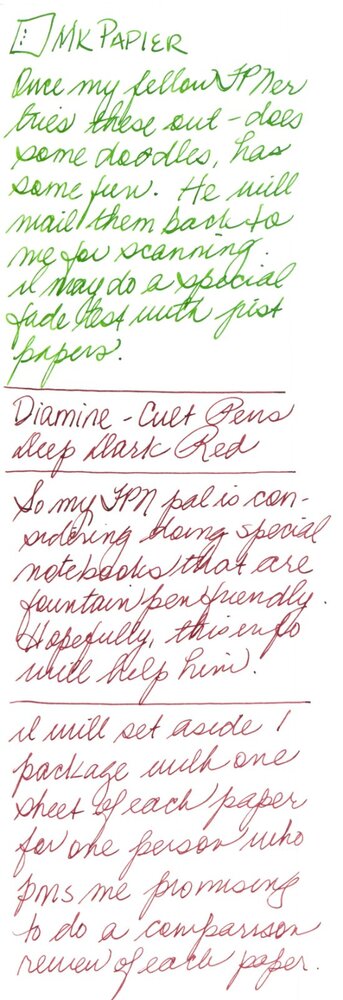 MK PAPIER
Once my fellow FPNer
tries these out - does
some doodles, has
some fun. He will
mail them back to
me for scanning.
I may do a special
fade test with just
papers.
Diamine - Cult Pens
Deep Dark Red
So my FPN pal is con-
sidering doing special
notebooks that are
fountain pen friendly.
Hopefully, this info
will help him.
I will set aside 1
package with one
sheet of each paper
for one person who
pms me promising
to do a comparison
review of each paper.